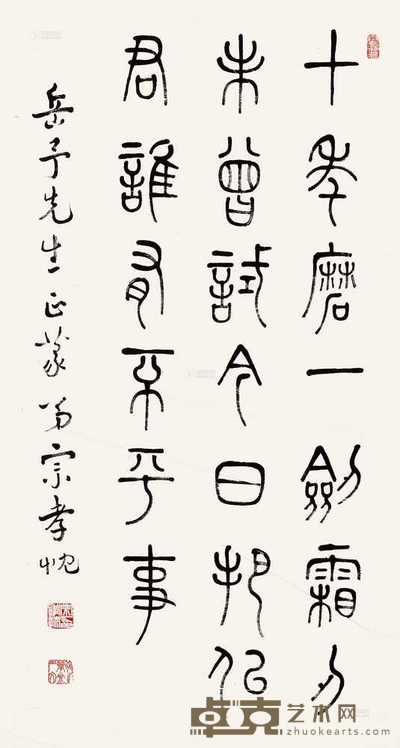 十年磨一劍霜刃
未曾試今日把佀
君誰有不平事
岳予先生正篆 弟宗孝忱
卓克艺术网
zhuokearts.com